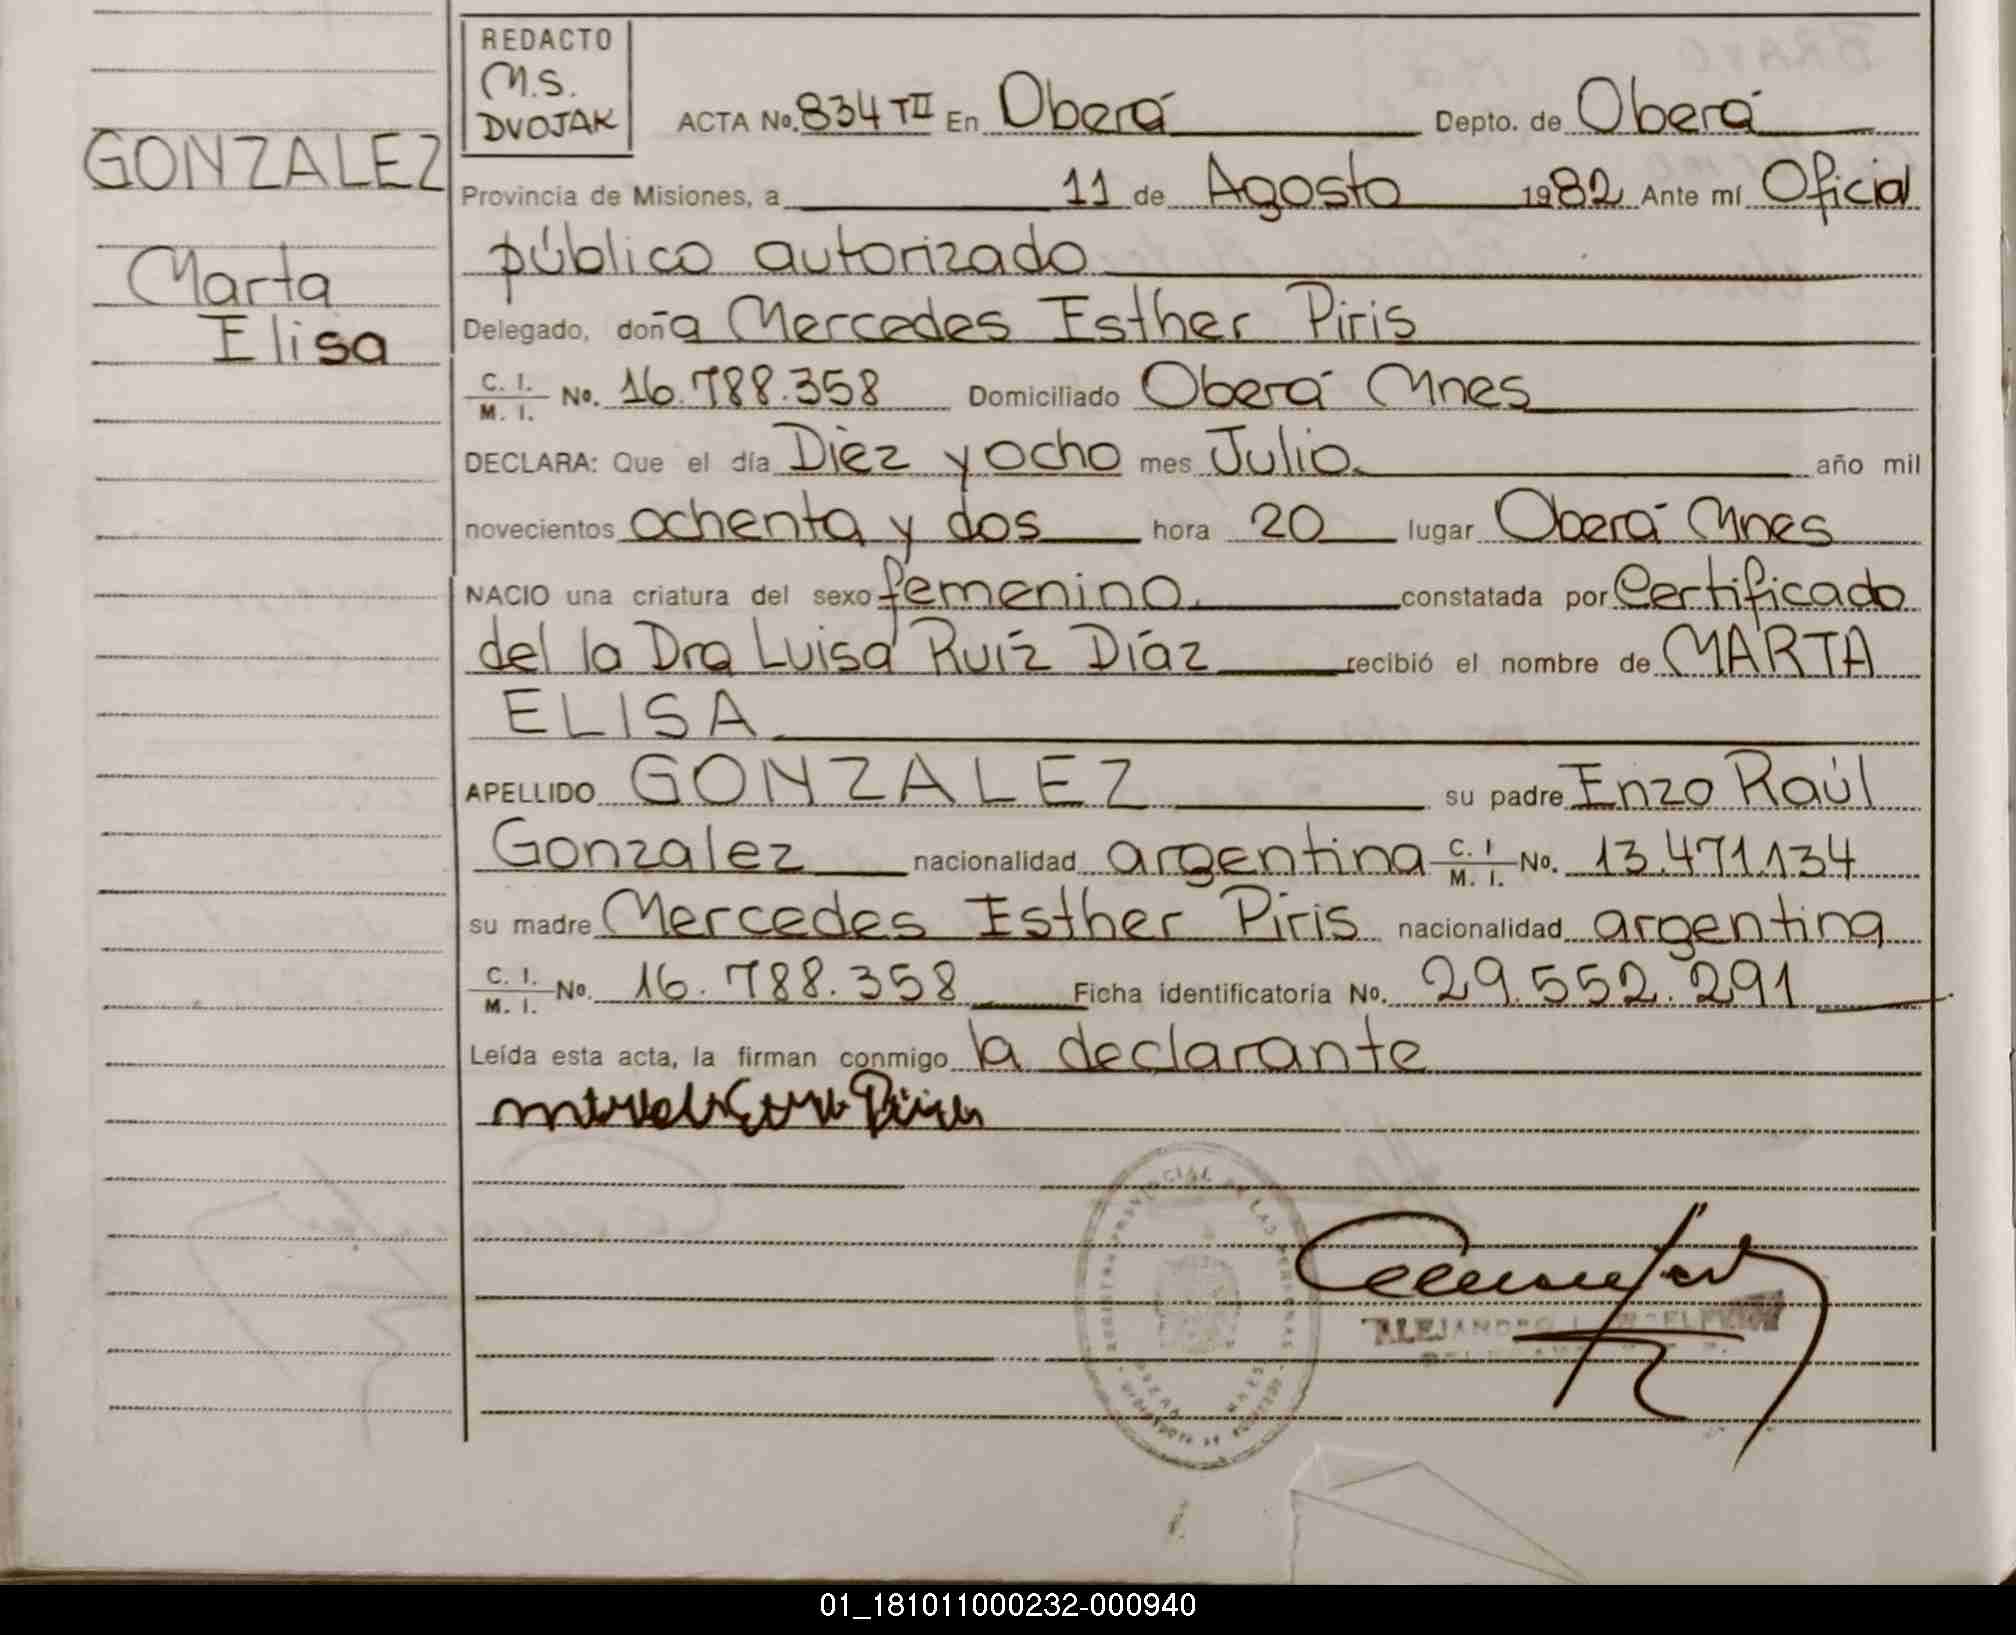 REDACTO
M.S.
DVOJAK
ACTA No. 834 TII En Oberá Depto. de Oberá
GONZALEZ
Provincia de Misiones, a 11 de Agosto 1982 Ante mí Oficial
público autorizado
Marta
Elisa
Delegado, doña Mercedes Esther Piris
C. I. M. I. No. 16.788.358 Domiciliado Oberá Mnes
DECLARA: Que el día Diez y ocho mes Julio año mil
novecientos ochenta y dos hora 20 lugar Oberá Mnes
NACIO una criatura del sexo femenino constatada por Certificado
del la Dra Luisa Ruíz Díaz recibió el nombre de MARTA
ELISA
APELLIDO GONZALEZ su padre Enzo Raúl
Gonzalez nacionalidad argentina C. I M. I. No. 13.471.134
su madre Mercedes Esther Piris nacionalidad argentina
C. I. M. I. No. 16.788.358 Ficha identificatoria No. 29.552.291
Leída esta acta, la firman conmigo la declarante
PROVINCIAL DE LAS PERSONAS
ALEJANDRO
01_181011000232-000940